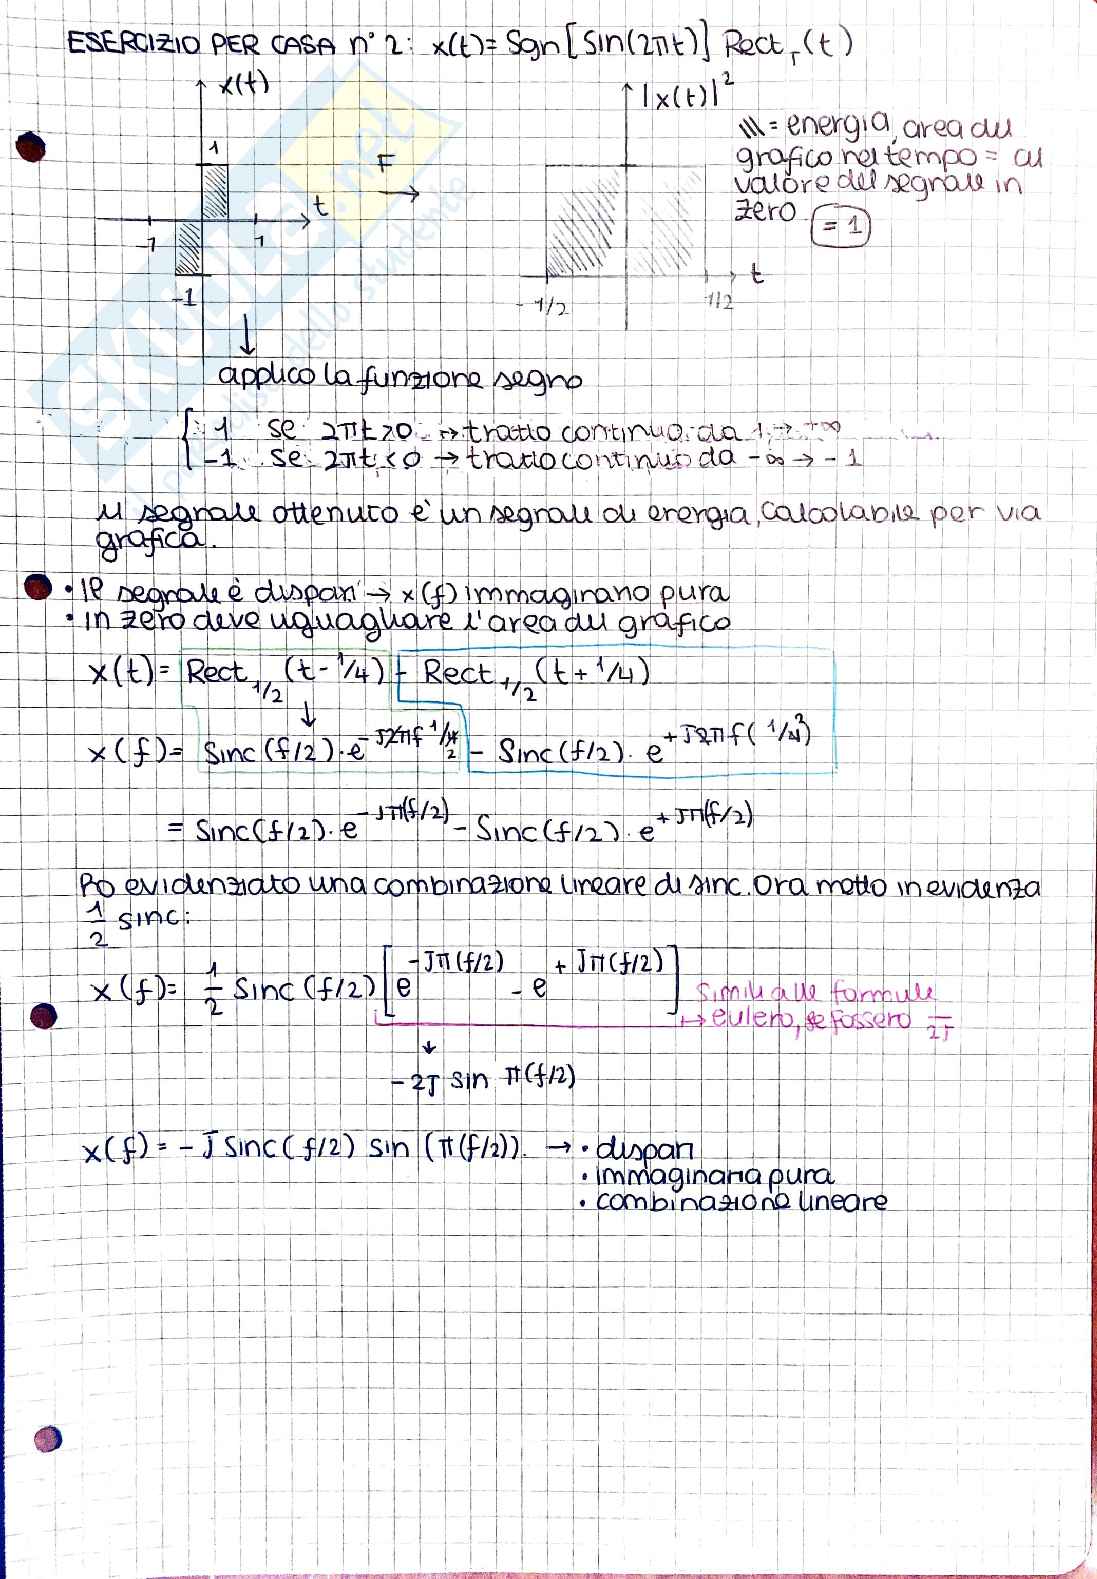 ESERCIZIO PER CASA n° 2: x(t) = Sgn [Sin(2πt)] Rect_T(t)
x(t)
1
F
t
-1
1
-1
|x(t)|²
-1/2
1/2
t
\\\ = energia, area del
grafico nel tempo = al
valore del segnale in
zero = 1
applico la funzione segno
1 se 2πt>0 → tratto continuo da 1 → +∞
-1 se 2πt<0 → tratto continuo da -∞ → -1
Il segnale ottenuto è un segnale di energia, calcolabile per via
grafica.
• Il segnale è dispari → x(f) immaginario pura
• in zero deve uguagliare l'area del grafico
x(t) = Rect_1/2 (t - 1/4) - Rect_1/2 (t + 1/4)
x(f) = Sinc(f/2) · e^-J2πf 1/2 - Sinc(f/2) · e^+J2πf(1/4)
= Sinc(f/2) · e^-Jπ(f/2) - Sinc(f/2) · e^+Jπ(f/2)
Ho evidenziato una combinazione lineare di sinc. Ora metto in evidenza
1/2 sinc:
x(f) = 1/2 Sinc (f/2) [e^-Jπ(f/2) - e^+Jπ(f/2)]
Simili alle formule
↦ eulero, se fossero /2J
-2J sin π(f/2)
x(f) = -J Sinc(f/2) sin (π(f/2)). → • dispari
• immaginaria pura
• combinazione lineare
SKUOLA.net